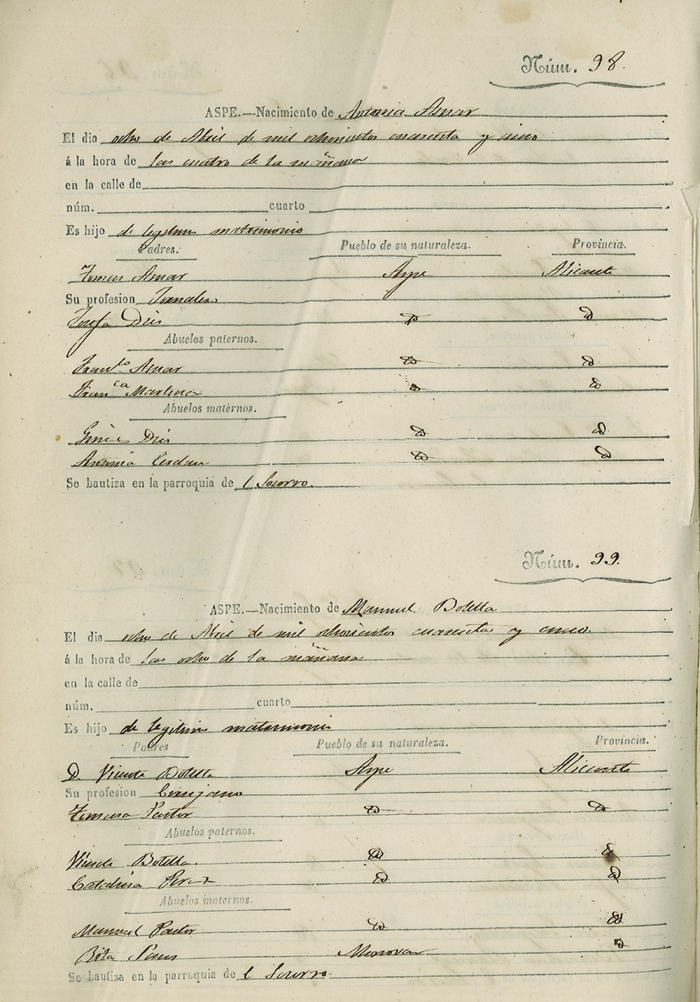 Núm. 98.
ASPE.—Nacimiento de Antonia Aznar
El dia ocho de Abril de mil ochocientos cuarenta y cinco
á la hora de las cuatro de la mañana
en la calle de
núm. cuarto
Es hijo de legitimo matrimonio
Padres. Pueblo de su naturaleza. Provincia.
Tomas Aznar Aspe Alicante
Su profesion Jornalero
Josefa
Abuelos paternos.
Fran.co Aznar
Fran.ca Martinez
Abuelos maternos.
Gines
Antonia Cerdan
Se bautiza en la parroquia de l Socorro.
Núm. 99.
ASPE.—Nacimiento de Manuel Botella
El dia ocho de Abril de mil ochocientos cuarenta y cinco
á la hora de las ocho de la mañana
en la calle de
núm. cuarto
Es hijo de legitimo matrimonio
Padres Pueblo de su naturaleza. Provincia.
D. Vicente Botella Aspe Alicante
Su profesion Cirujano
Tomasa Pastor
Abuelos paternos.
Vicente Botella.
Catalina Perez
Abuelos maternos.
Manuel Pastor
Rita Monovar
Se bautiza en la parroquia de l Socorro